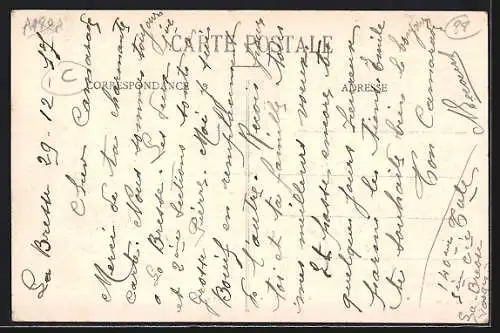 CARTE POSTALE
CORRESPONDANCE
ADRESSE
La Bresse 29-12-
Cher Camarade
Merci de ta charmante
carte. Nous sommes toujours
à La Bresse. Les 1ère
et 2ème Sections sont
grosse Pierre. Moi je suis
en remplacement
de l'autre. Reçois pour
toi et ta famille tous
mes meilleurs voeux
Et passe encore
quelques jours heureux
parmi les tiens. Emile
te souhaite bien le bonjour
Ton Camarade
140ème
5ème Cie
La Bresse
Vosges